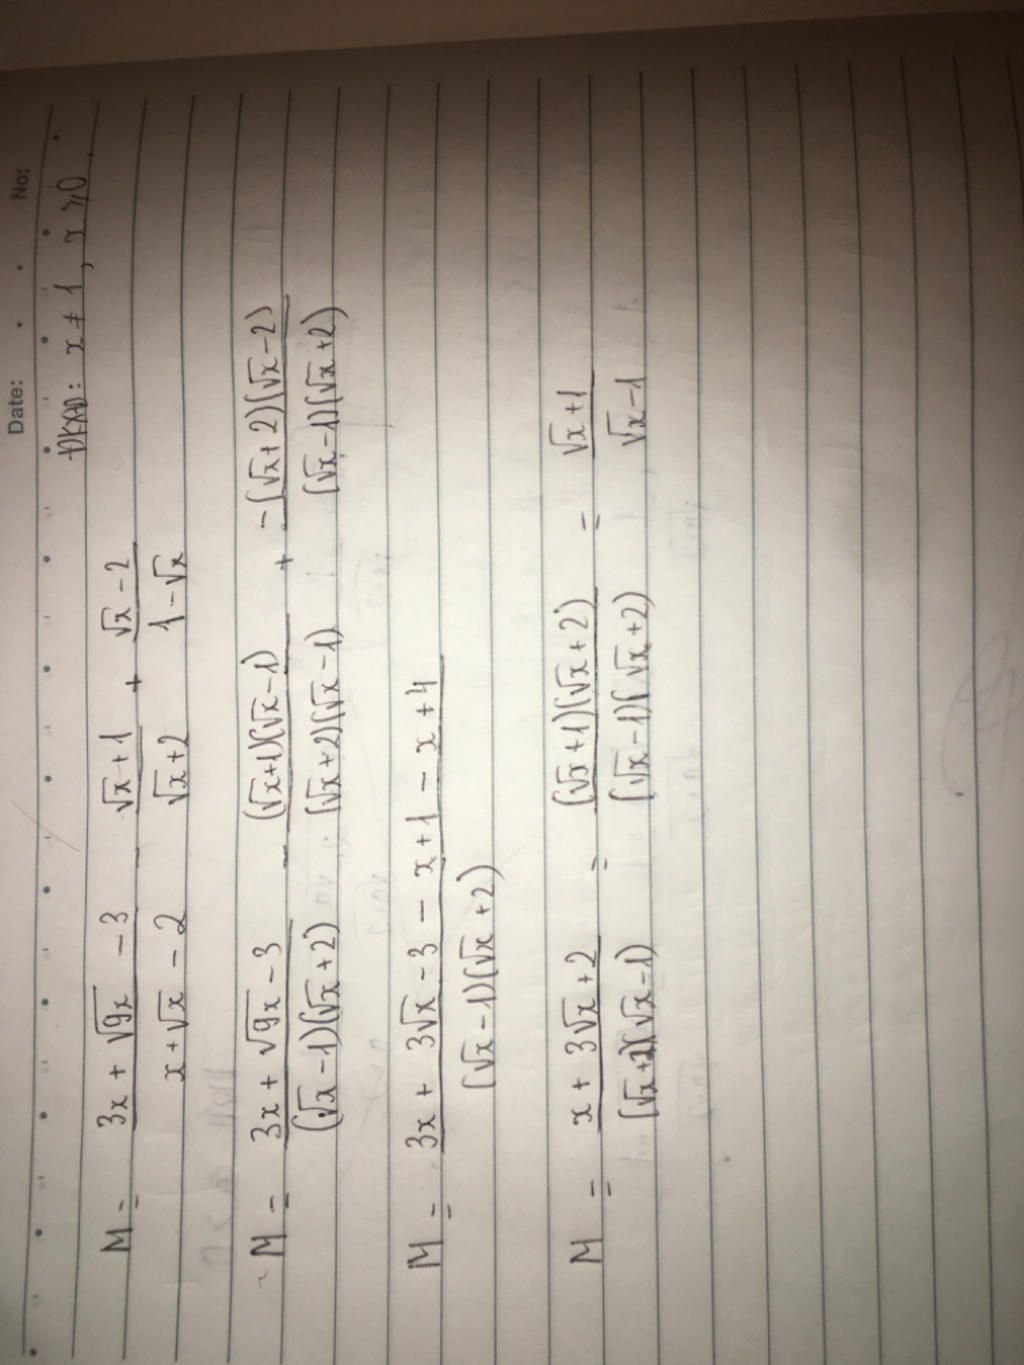 Date: No:
ĐKXĐ: x ≠ 1, x ⩾ 0.
M = (3x + √9x - 3)/(x + √x - 2) - (√x + 1)/(√x + 2) + (√x - 2)/(1 - √x)
M = (3x + √9x - 3)/((√x - 1)(√x + 2)) - ((√x + 1)(√x - 1))/((√x + 2)(√x - 1)) + (-(√x + 2)(√x - 2))/((√x - 1)(√x + 2))
M = (3x + 3√x - 3 - x + 1 - x + 4)/((√x - 1)(√x + 2))
M = (x + 3√x + 2)/((√x + 2)(√x - 1)) = ((√x + 1)(√x + 2))/((√x - 1)(√x + 2)) = (√x + 1)/(√x - 1)